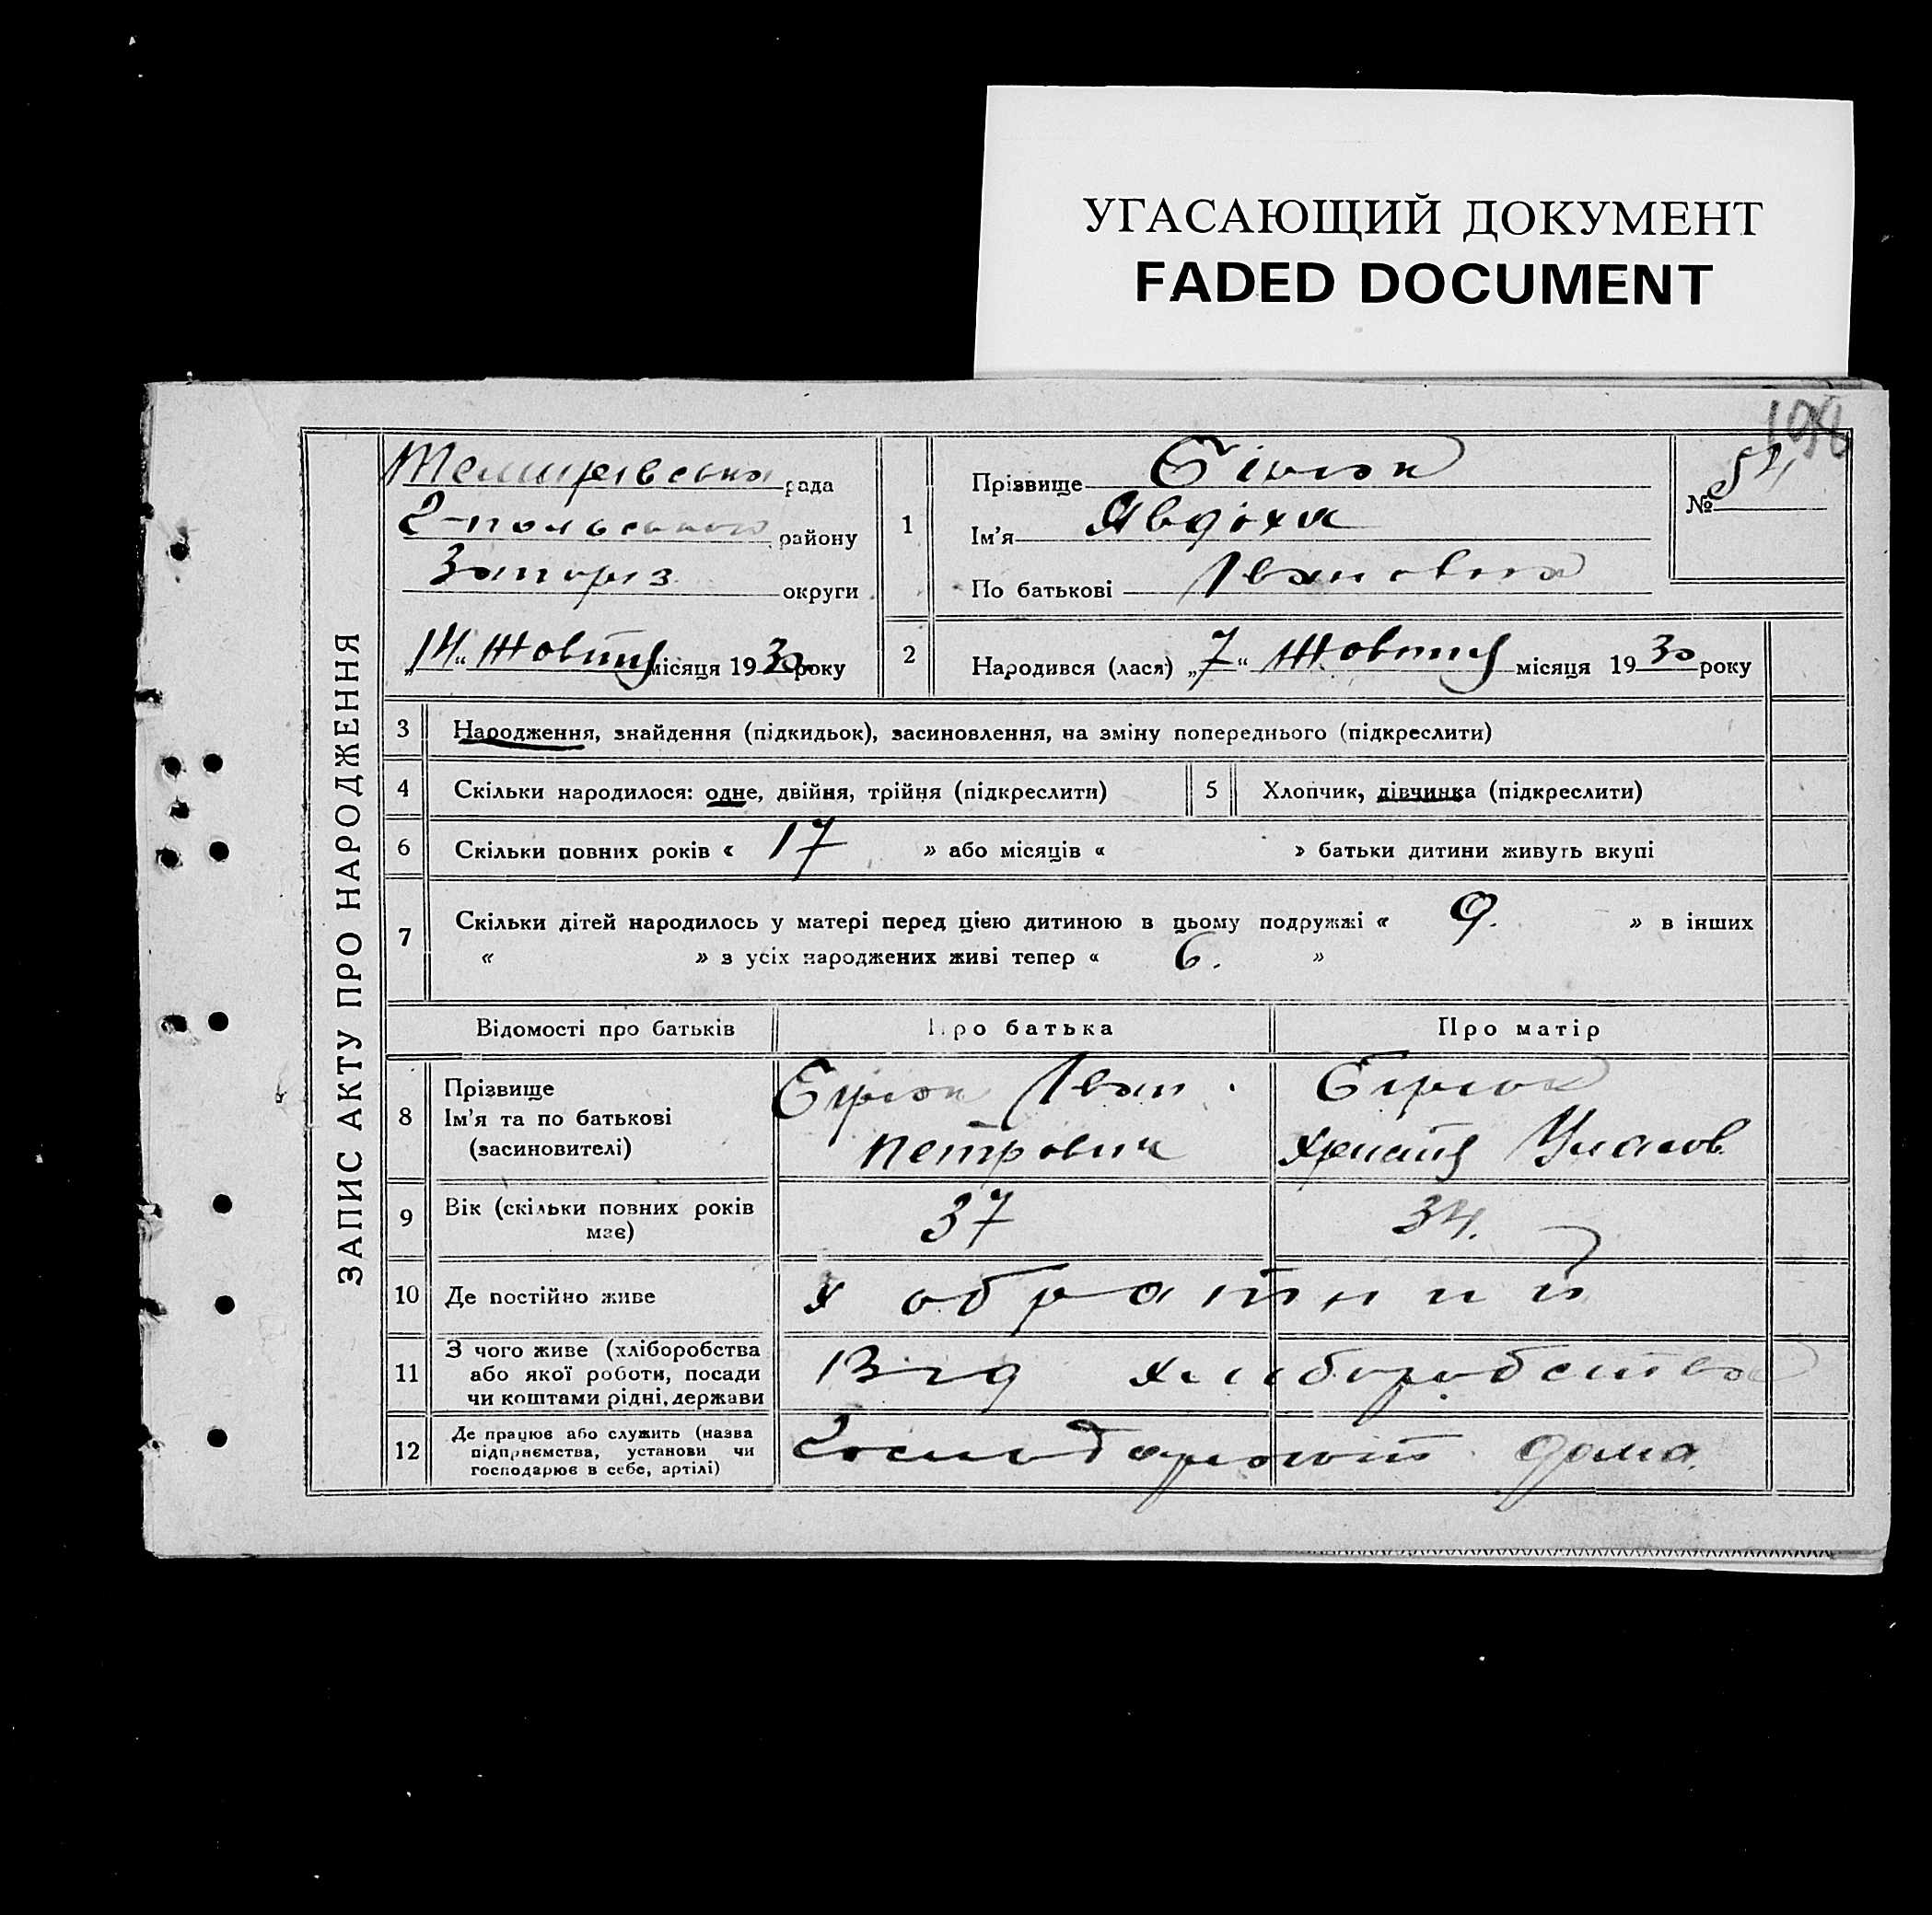 УГАСАЮЩИЙ ДОКУМЕНТ
FADED DOCUMENT
ЗАПИС АКТУ ПРО НАРОДЖЕННЯ
Темирівська рада
Г-польського району
Запоріз округи
„14“ Жовтня місяця 1930 року
1
Прізвище
Ім’я Явдоха
По батькові Івановна
№ 54
2
Народився (лася) „7“ Жовтня місяця 1930 року
3 Народження, знайдення (підкидьок), засиновлення, на зміну попереднього (підкреслити)
4 Скільки народилося: одне, двійня, трійня (підкреслити)
5 Хлопчик, дівчинка (підкреслити)
6 Скільки повних років « 17 » або місяців « » батьки дитини живуть вкупі
7 Скільки дітей народилось у матері перед цією дитиною в цьому подружжі « 9. » в інших
« » з усіх народжених живі тепер « 6. »
Відомості про батьків Про батька Про матір
8 Прізвище
Ім’я та по батькові
(засиновителі)
Іван
Петрович
9 Вік (скільки повних років
має)
37
34.
10 Де постійно живе
х обратний
11 З чого живе (хліборобства
або якої роботи, посади
чи коштами рідні, держави
Від хліборобства
12 Де працює або служить (назва
підприємства, установи чи
господарює в себе, артілі)
Господарюють дома.